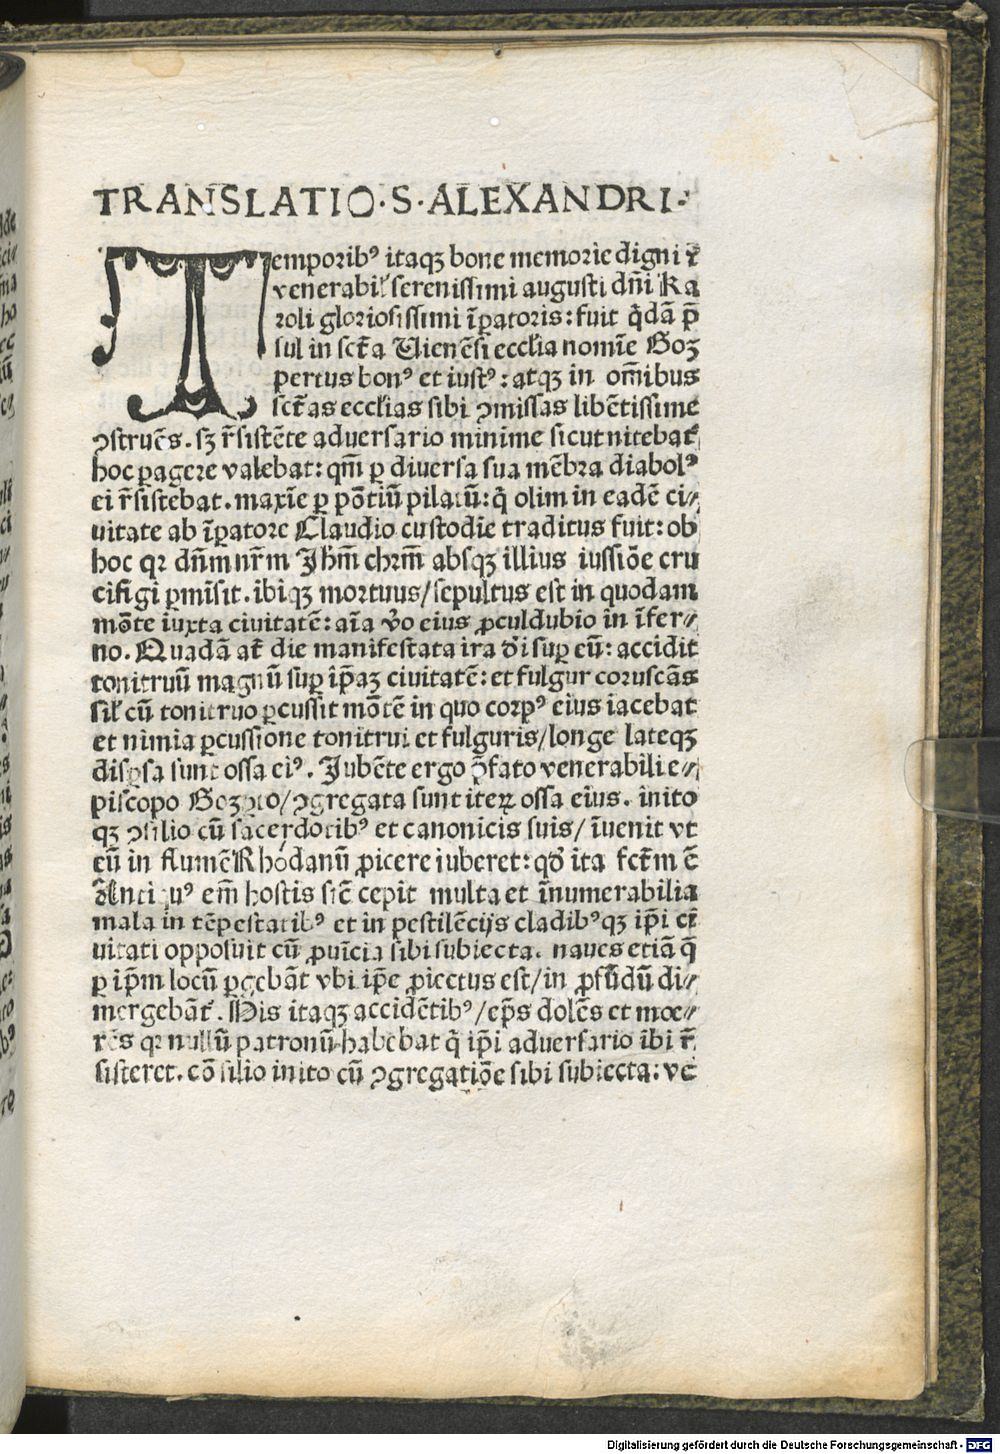 TRANSLATIO·S·ALEXANDRI·
Temporibꝰ itaqꝫ bone memorie digni ⁊
venerabil̕ serenissimi augusti dñi Ka
roli gloriosissimi īp̄atoris: fuit q̄dā p̄
sul in sct̄a Vienēsi eccl̄ia nomīe Boꝫ
pertus bonꝰ et iustꝰ: atqꝫ in om̄ibus
sct̄as eccl̄ias sibi ꝯmissas libētissime
ꝯstruēs. sꝫ r̄sistēte adversario minime sicut nitebat̄
hoc ꝑagere valebat: qm̄ ꝑ diversa sua mēbra diabolꝰ
ei r̄sistebat. maxīe ꝑ pōtiū pilatū: q̄ olim in eadē ci⸗
uitate ab īp̄atore Claudio custodīe traditus fuit: ob
hoc qꝛ dn̄m nr̄m Jh̄m chr̄m absqꝫ illius iussiōe cru
cifi gi ꝑmisit. ibiqꝫ mortuus/ sepultus est in quodam
mōte iuxta civitatē: aīa v̄o eius ꝓculdubio in īfer⸗
no. Quadā at̄ die manifestata ira d̄i suꝑ eū: accidit
tonitruū magnū suꝑ ip̄aꝫ civitatē: et fulgur coruscās
sil̕ cū tonitruo ꝑcussit mōtē in quo corpꝰ eius iacebat
et nimia ꝑcussione tonitrui et fulguris/ longe lateqꝫ
disꝑsa sunt ossa eiꝰ. Jubēte ergo p̄fato venerabili e⸗
piscopo Boꝫꝑto/ ꝯgregata sunt iteꝝ ossa eius. inito
qꝫ ꝯsilio cū sacerdotibꝰ et canonicis suis/ īuenit vt
eū in flumē Rhodanū ꝓicere iuberet: qd̄ ita fct̄m ē
Anti uꝰ em̄ hostis sic̄ cepit multa et īnumerabilia
mala in tēpestatibꝰ et in pestilēcijs cladibꝰqꝫ ip̄i ci⸗
uitati opposuit cū ꝓuīcia sibi subiecta. naves etiā q̄
ꝑ ip̄m locū ꝑgebāt vbi ip̄e ꝓiectus est/ in ꝓfūdū di⸗
mergebāt̄. His itaqꝫ accidētibꝰ/ ep̄s dolēs et moe⸗
rēs qꝛ nullū patronū habebat q̄ ip̄i adversario ibi r̄
sisteret. cōsilio inito cū ꝯgregatiōe sibi subiecta: ve
Digitalisierung gefördert durch die Deutsche Forschungsgemeinschaft - DFG